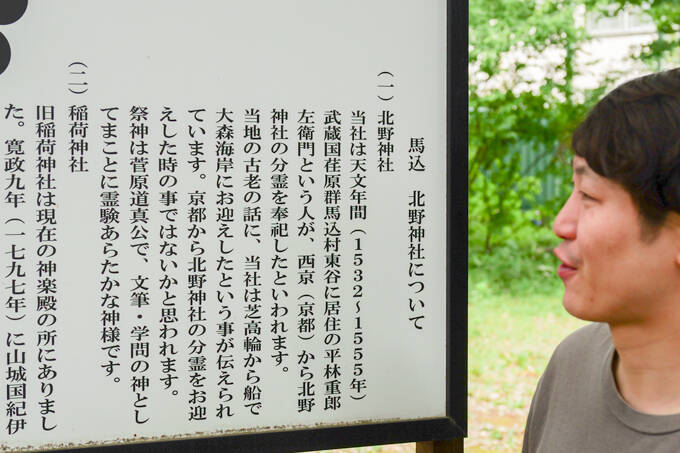 馬込 北野神社について
(一) 北野神社
当社は天文年間(1532~1555年)
武蔵国荏原群馬込村東谷に居住の平林重郎
左衛門という人が、西京(京都)から北野
神社の分霊を奉祀したといわれます。
当地の古老の話に、当社は芝高輪から船で
大森海岸にお迎えしたという事が伝えられ
ています。京都から北野神社の分霊をお迎
えした時の事ではないかと思われます。
祭神は菅原道真公で、文筆・学問の神とし
てまことに霊験あらたかな神様です。
(二) 稲荷神社
旧稲荷神社は現在の神楽殿の所にありまし
た。寛政九年(一七九七年)に山城国紀伊